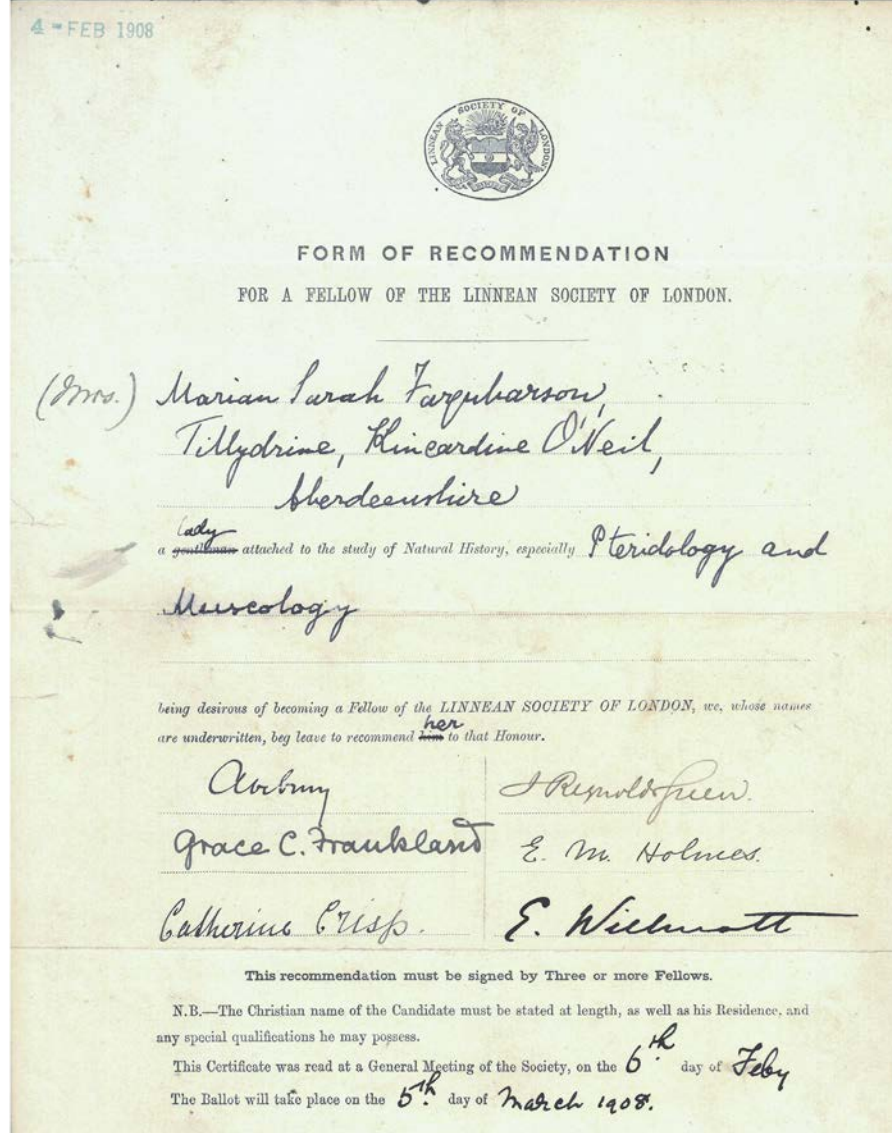 4 - FEB 1908
LINNEAN SOCIETY OF LONDON
FORM OF RECOMMENDATION
FOR A FELLOW OF THE LINNEAN SOCIETY OF LONDON.
(Mrs.) Marian Sarah Farquharson,
Tillydrine, Kincardine O'Neil,
Aberdeenshire
lady
a gentleman attached to the study of Natural History, especially Pteridology and
Muscology
being desirous of becoming a Fellow of the LINNEAN SOCIETY OF LONDON, we, whose names
her
are underwritten, beg leave to recommend him to that Honour.
Avebury J Reynolds Green.
Grace C. Frankland E. M. Holmes.
Catherine Crisp. E. Willmott
This recommendation must be signed by Three or more Fellows.
N.B.—The Christian name of the Candidate must be stated at length, as well as his Residence, and
any special qualifications he may possess.
This Certificate was read at a General Meeting of the Society, on the 6th. day of Feby
The Ballot will take place on the 5th. day of March 1908.